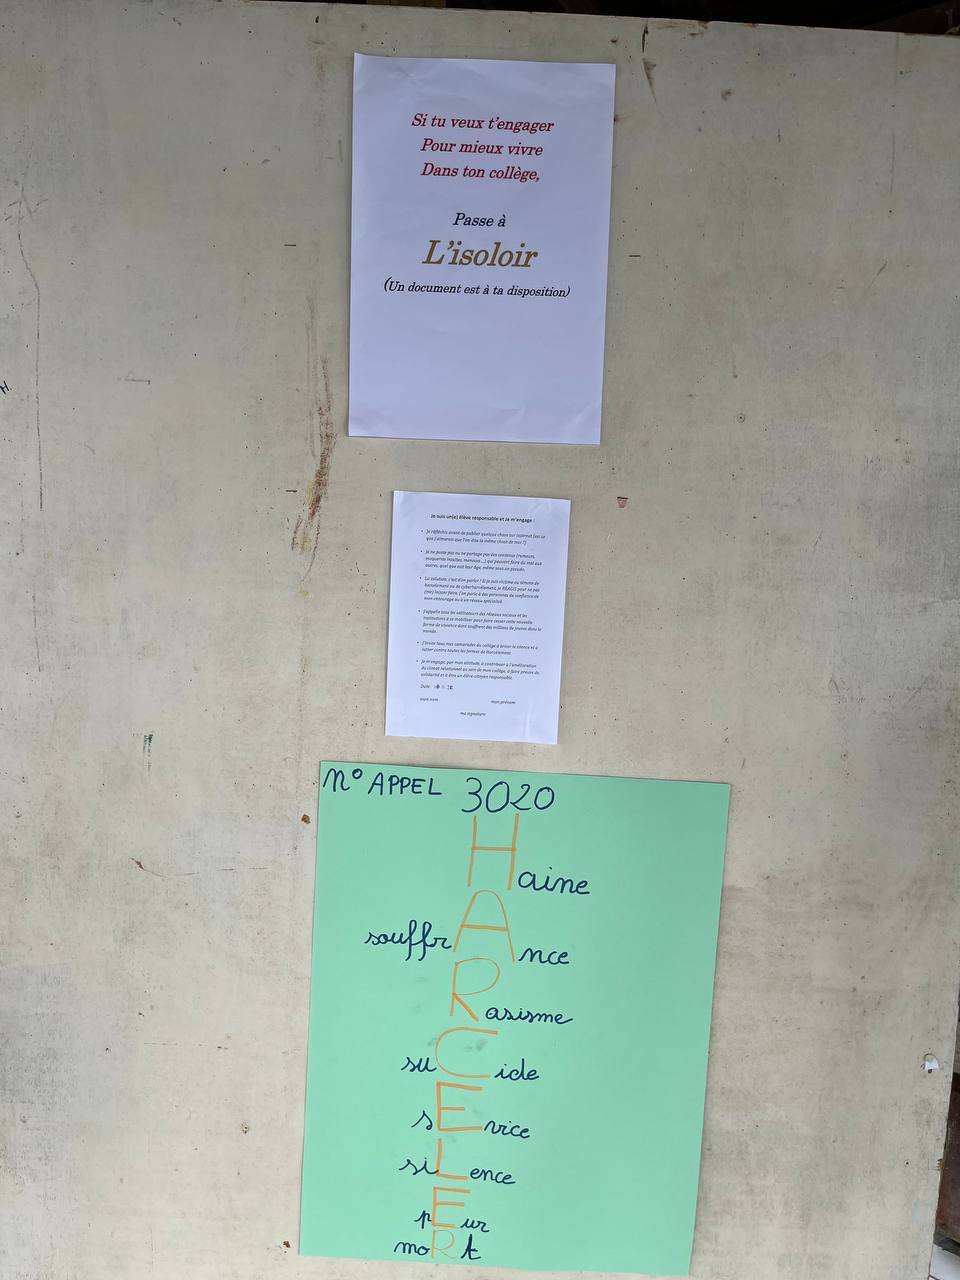 Si tu veux t'engager
Pour mieux vivre
Dans ton collège,
Passe à
L'isoloir
(Un document est à ta disposition)
Je suis un(e) élève responsable et Je m'engage :
• Je réfléchis avant de publier quelque chose sur internet (est ce
que j'aimerais que l'on dise la même chose de moi ?)
• Je ne poste pas ou ne partage pas des contenus (rumeurs,
moqueries insultes, menaces...) qui peuvent faire du mal aux
autres, quel que soit leur âge, même sous un pseudo.
• La solution, c'est d'en parler ! Si je suis victime ou témoin de
harcèlement ou de cyberharcèlement, je REAGIS pour ne pas
(me) laisser faire. J'en parle à des personnes de confiance de
mon entourage ou à un réseau spécialisé.
• J'appelle tous les utilisateurs des réseaux sociaux et les
institutions à se mobiliser pour faire cesser cette nouvelle
forme de violence dont souffrent des millions de jeunes dans le
monde.
• J'invite tous mes camarades du collège à briser le silence et à
lutter contre toutes les formes de Harcèlement
• Je m'engage, par mon attitude, à contribuer à l'amélioration
du climat relationnel au sein de mon collège, à faire preuve de
solidarité et à être un élève citoyen responsable.
Date :
mon nom mon prénom
ma signature
N° APPEL 3020
Haine
souffrAnce
Rasisme
suCide
sErvice
siLence
pEur
moRt